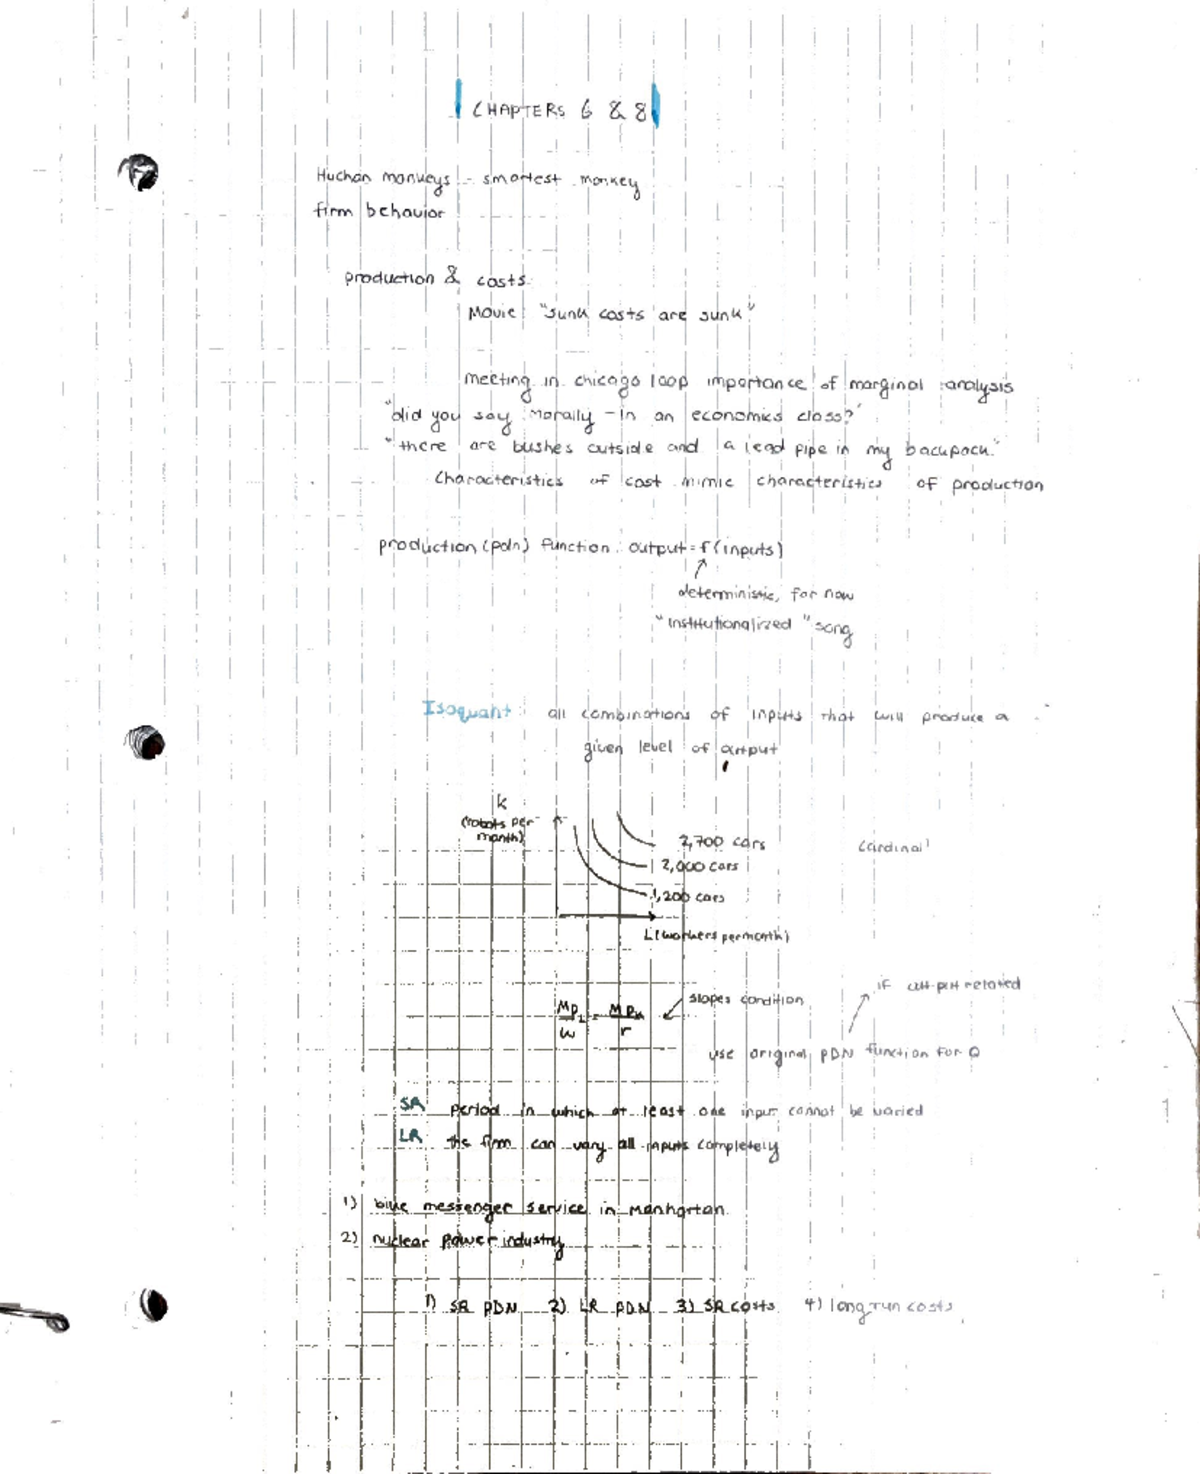 CHAPTERS 6 & 8
Huchan monkeys - smartest monkey
firm behavior
production & costs:
Movie: "sunk costs are sunk"
meeting in chicago loop importance of marginal analysis
"did you say morally - in an economics class?"
"there are bushes outside and a lead pipe in my backpack."
Characteristics of cost mimic characteristics of production
production (pdn) function: output = f(inputs)
deterministic, for now
"institutionalized" song
Isoquant: all combinations of inputs that will produce a
given level of output
K
(robots per
month)
2,700 cars
(cardinal)
2,000 cars
1,200 cars
L (workers per month)
if output related
slopes condition
MPL/w = MPK/r
use original PDN function for Q
SR period in which at least one input cannot be varied
LR the firm can vary all inputs completely
1) bike messenger service in Manhattan
2) nuclear power industry
1) SR PDN 2) LR PDN 3) SR costs 4) long run costs